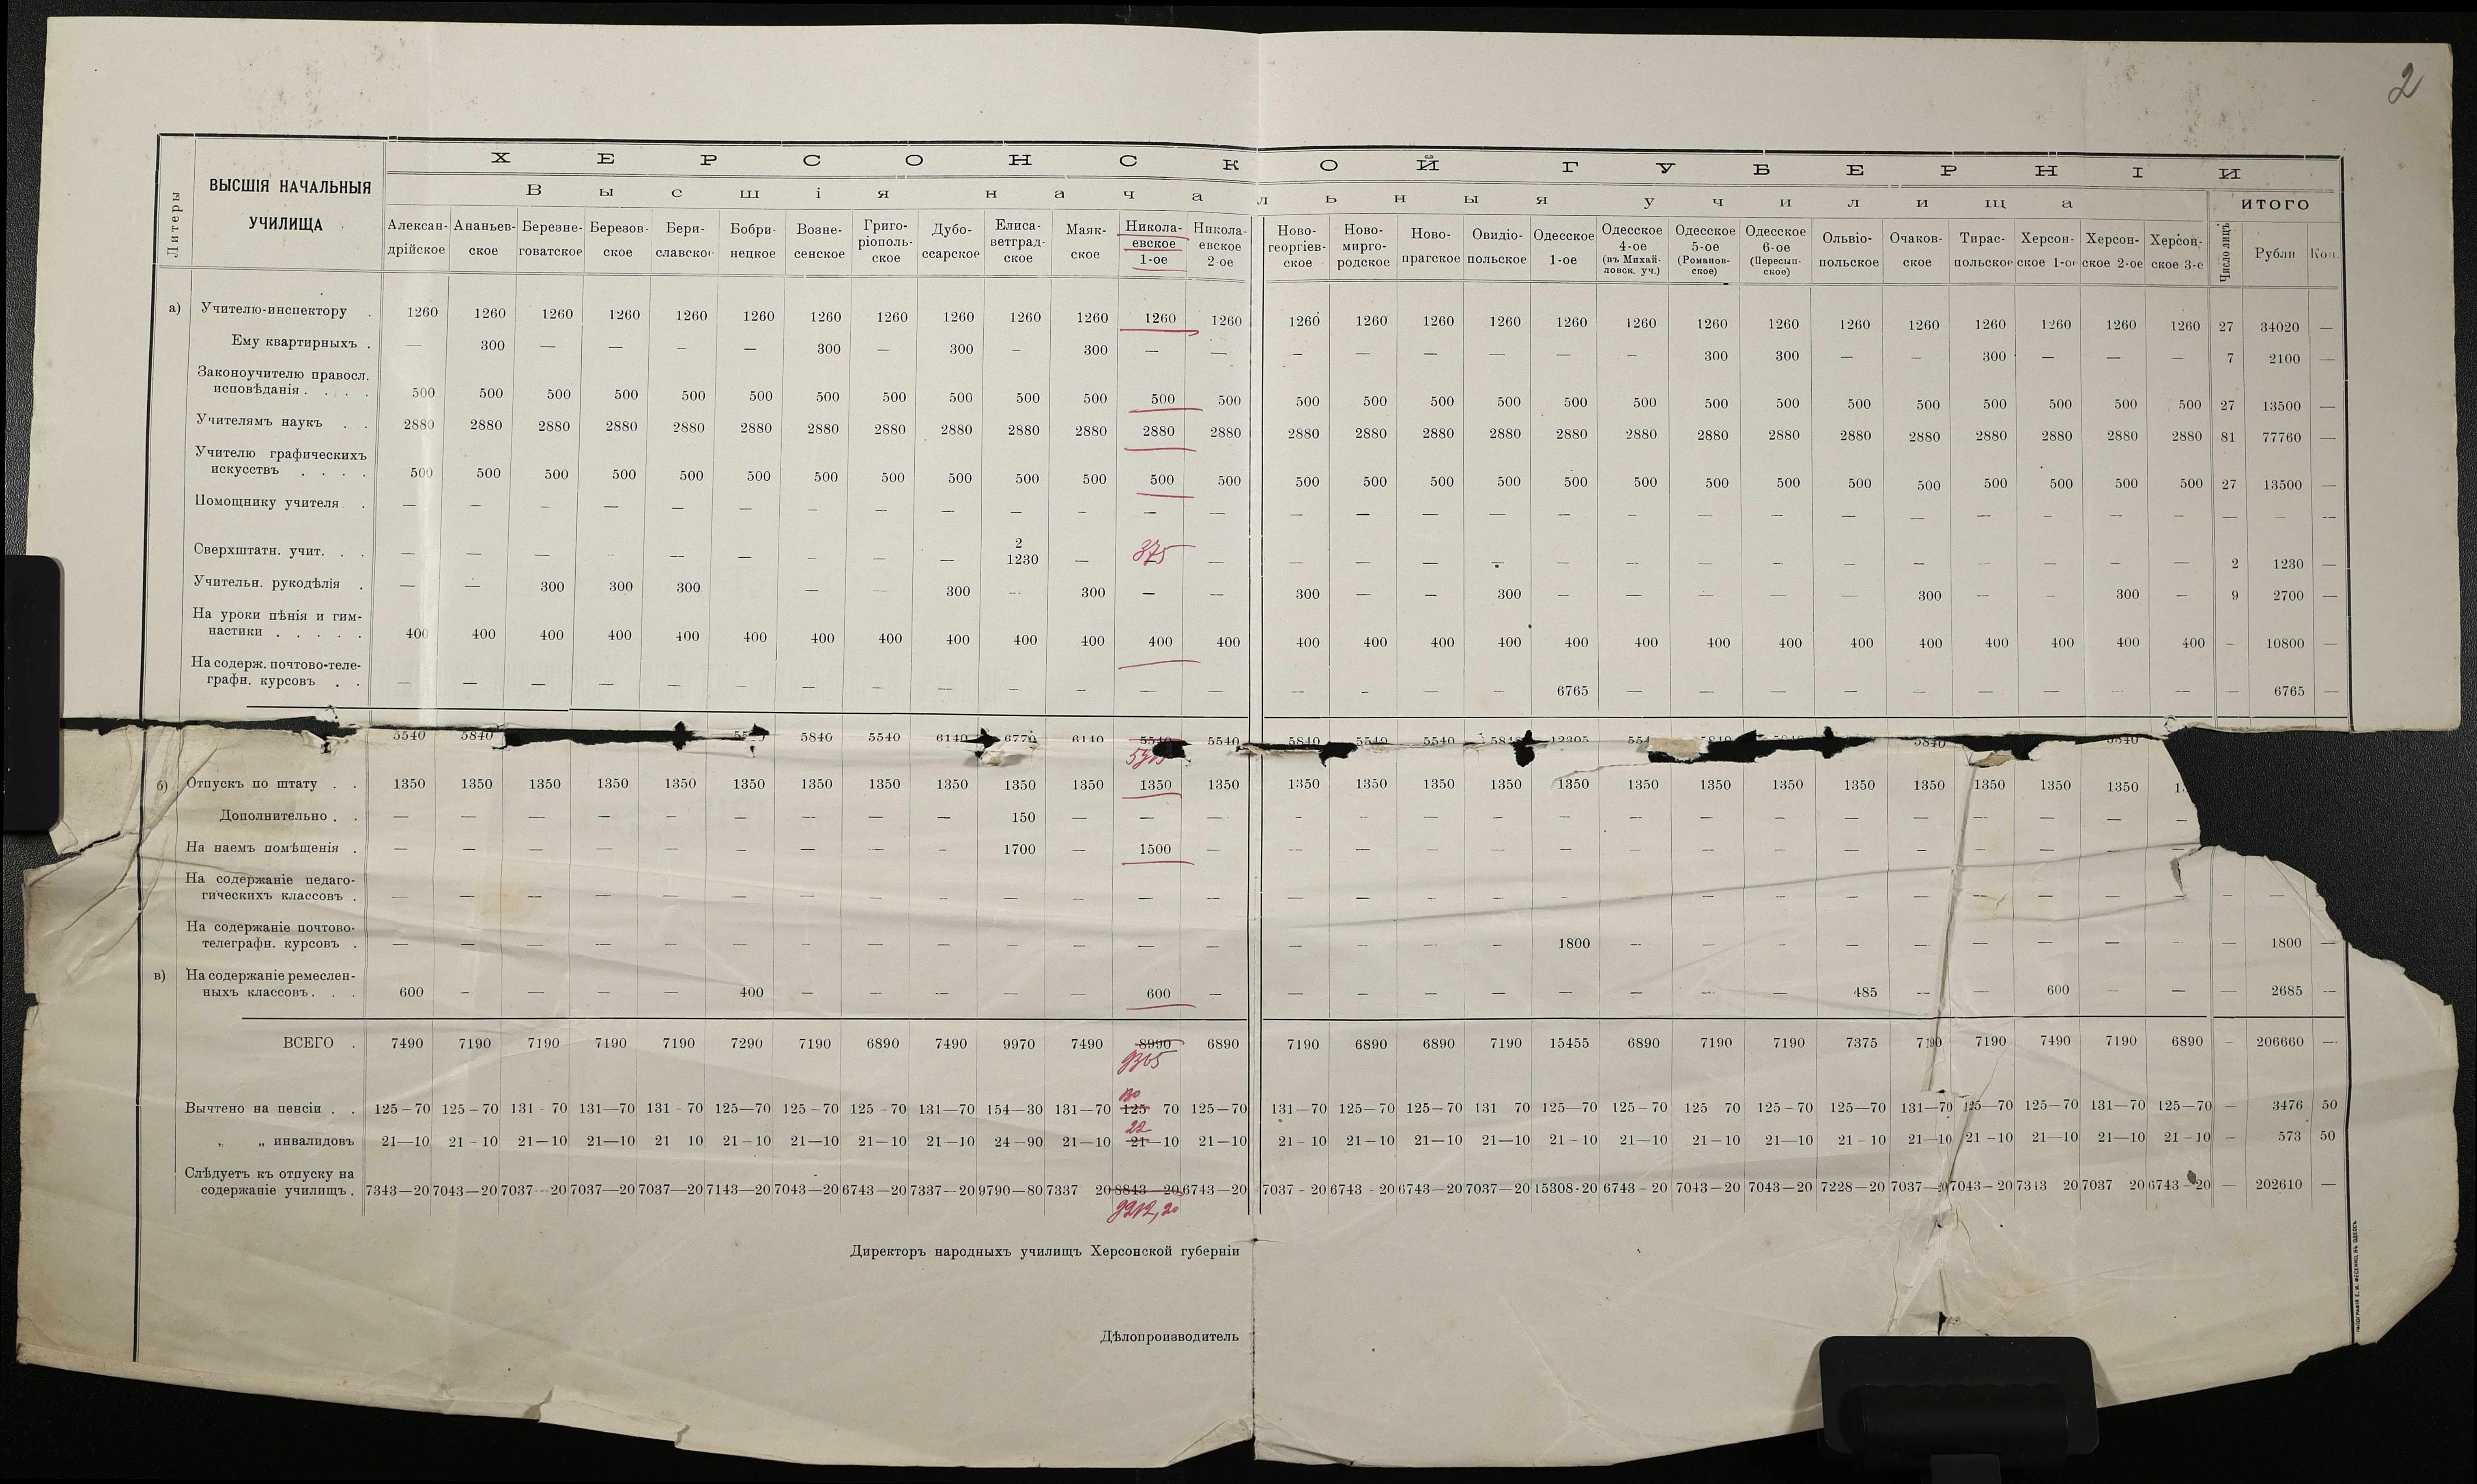 2
ХЕРСОНСКОЙ ГУБЕРНІИ
Литеры
ВЫСШІЯ НАЧАЛЬНЫЯ
УЧИЛИЩА
Высшія начальныя училища
ИТОГО
Алексан-дрійское Ананьев-ское Березне-говатское Березов-ское Бери-славское Бобри-нецкое Возне-сенское Григо-ріополь-ское Дубо-ссарское Елиса-ветград-ское Маяк-ское Никола-евское 1-ое Никола-евское 2-ое Ново-георгіев-ское Ново-мирго-родское Ново-прагское Овидіо-польское Одесское 1-ое Одесское 4-ое (въ Михай-ловск. уч.) Одесское 5-ое (Романов-ское) Одесское 6-ое (Пересып-ское) Ольвіо-польское Очаков-ское Тирас-польское Херсон-ское 1-ое Херсон-ское 2-ое Херсон-ское 3-е Число лицъ Рубли Коп.
а) Учителю-инспектору . 1260 1260 1260 1260 1260 1260 1260 1260 1260 1260 1260 1260 1260 1260 1260 1260 1260 1260 1260 1260 1260 1260 1260 1260 1260 1260 1260 27 34020 —
Ему квартирныхъ . — 300 — — — — 300 — 300 — 300 — — — — — — — — 300 300 — — 300 — — — 7 2100 —
Законоучителю правосл.
исповѣданія . . . . 500 500 500 500 500 500 500 500 500 500 500 500 500 500 500 500 500 500 500 500 500 500 500 500 500 500 500 27 13500 —
Учителямъ наукъ . . 2880 2880 2880 2880 2880 2880 2880 2880 2880 2880 2880 2880 2880 2880 2880 2880 2880 2880 2880 2880 2880 2880 2880 2880 2880 2880 2880 81 77760 —
Учителю графическихъ
искусствъ . . . . 500 500 500 500 500 500 500 500 500 500 500 500 500 500 500 500 500 500 500 500 500 500 500 500 500 500 500 27 13500 —
Помощнику учителя . — — — — — — — — — — — — — — — — — — — — — — — — — — — — — —
Сверхштатн. учит. . . — — — — — — — — — 2 1230 — 375 — — — — — — — — — — — — — — — 2 1230 —
Учительн. рукодѣлія . — — 300 300 300 — — 300 — 300 — — 300 — — 300 — — — — — 300 — — 300 — 9 2700 —
На уроки пѣнія и гим-
настики . . . . . 400 400 400 400 400 400 400 400 400 400 400 400 400 400 400 400 400 400 400 400 400 400 400 400 400 400 400 — 10800 —
На содерж. почтово-теле-
графн. курсовъ . . — — — — — — — — — — — — — — — — — 6765 — — — — — — — — — — 6765 —
5540 5840 5840 5540 6140 6770 6140 5540 5540 5840 5540 5540 5840 12305 5840 5840
б) Отпускъ по штату . . 1350 1350 1350 1350 1350 1350 1350 1350 1350 1350 1350 1350 1350 1350 1350 1350 1350 1350 1350 1350 1350 1350 1350 1350 1350 1350
Дополнительно . . — — — — — — — — — 150 — — — — — — — — — — — — — — — — —
На наемъ помѣщенія . — — — — — — — — — 1700 — 1500 — — — — — — — — — — — — — — —
На содержаніе педаго-
гическихъ классовъ . — — — — — — — — — — — — — — — — — — — — — — — — — — — — —
На содержаніе почтово-
телеграфн. курсовъ . — — — — — — — — — — — — — — — — — 1800 — — — — — — — — — — 1800 —
в) На содержаніе ремеслен-
ныхъ классовъ . . . 600 — — — — 400 — — — — — 600 — — — — — — — — — 485 — — 600 — — — 2685 —
ВСЕГО . 7490 7190 7190 7190 7190 7290 7190 6890 7490 9970 7490 8990 6890 7190 6890 6890 7190 15455 6890 7190 7190 7375 7190 7190 7490 7190 6890 — 206660 —
9365
130
Вычтено на пенсіи . . 125—70 125—70 131—70 131—70 131—70 125—70 125—70 125—70 131—70 154—30 131—70 125 70 125—70 131—70 125—70 125—70 131 70 125—70 125—70 125 70 125—70 125—70 131—70 125—70 125—70 131—70 125—70 — 3476 50
22
„ „ инвалидовъ 21—10 21—10 21—10 21—10 21 10 21—10 21—10 21—10 21—10 24—90 21—10 21—10 21—10 21—10 21—10 21—10 21—10 21—10 21—10 21—10 21—10 21—10 21—10 21—10 21—10 21—10 21—10 — 573 50
Слѣдуетъ къ отпуску на
содержаніе училищъ . 7343—20 7043—20 7037—20 7037—20 7037—20 7143—20 7043—20 6743—20 7337—20 9790—80 7337 20 8843—20 6743—20 7037—20 6743—20 6743—20 7037—20 15308-20 6743—20 7043—20 7043—20 7228—20 7037—20 7043—20 7343 20 7037 20 6743—20 — 202610 —
9212,20
Директоръ народныхъ училищъ Херсонской губерніи
Дѣлопроизводитель